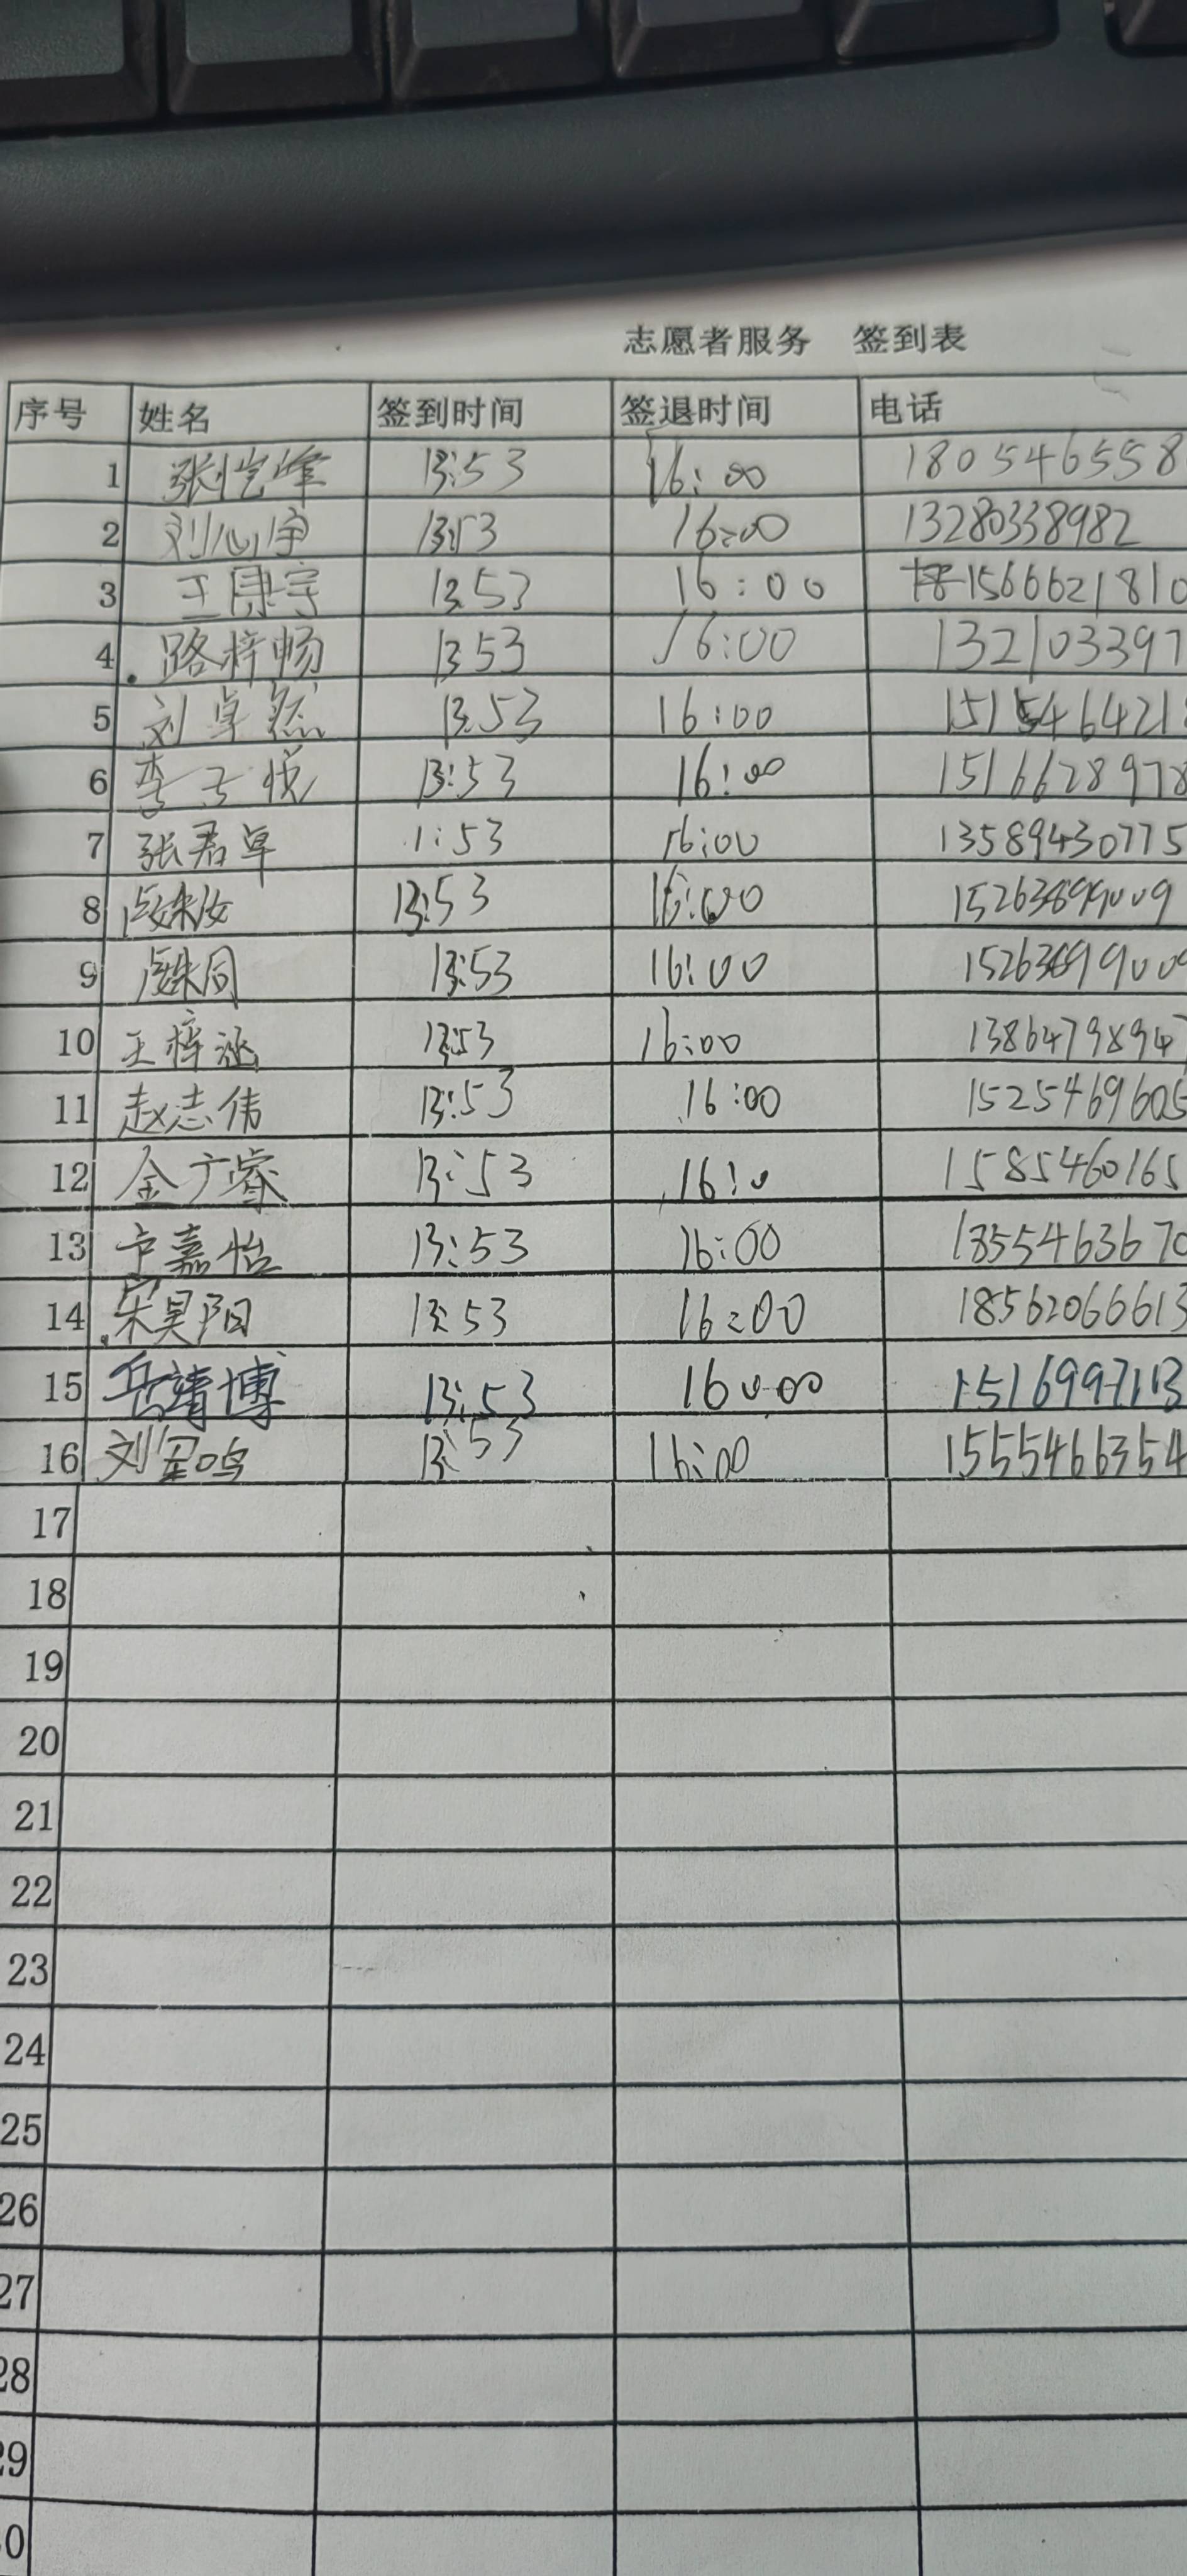 志愿者服务 签到表
序号 姓名 签到时间 签退时间 电话
1 张恺峰 13:53 16:00 180546558
2 刘心宇 13:53 16:00 13280338982
3 王康宇 13:53 16:00 1566621810
4 路梓畅 13:53 16:00 132103397
5 刘卓然 13:53 16:00 151546421
6 李子悦 13:53 16:00 1516628978
7 张君卓 1:53 16:00 13589430775
8 13:53 16:00
9 13:53 16:00
10 王梓涵 13:53 16:00 1386479894
11 赵志伟 13:53 16:00 1525469605
12 金广睿 13:53 16:0 1585460165
13 卢嘉怡 13:53 16:00 1855463670
14 宋昊阳 13:53 16:00 18562066613
15 岳靖博 13:53 16:00
16 刘军鸣 13:53 16:00 1555466354
17
18
19
20
21
22
23
24
25
26
27
28
29